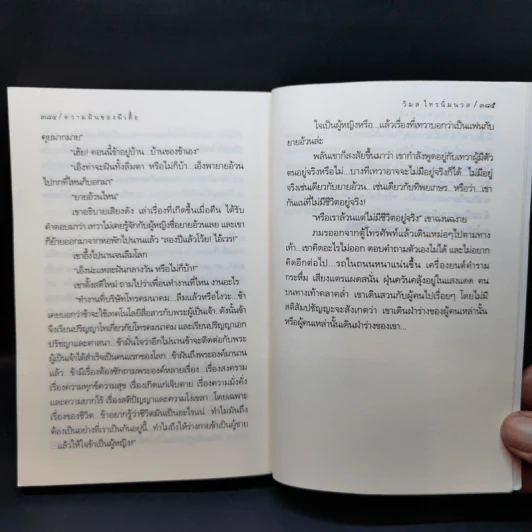 ๓๘๔ / ความฝันของผีเสื้อ
คุยมากมาย"
"เฮ้ย! ตอนนี้ข้าอยู่บ้าน...บ้านของข้าเอง"
"เอ็งท่าจะฝันทั้งลืมตา หรือไม่ก็บ้า...เอ็งพายายอ้วน
ไปกกที่ไหนก็บอกมา"
"ยายอ้วนไหน"
เขาอธิบายเสียงดัง เล่าเรื่องที่เกิดขึ้นเมื่อคืน ได้รับ
คำตอบมาว่า เทวาไม่เคยรู้จักกับผู้หญิงชื่อยายอ้วนเลย และเขา
ก็ย้ายออกมาจากหอพักไปนานแล้ว "ลองปีแล้วโว้ย! ไอ้เวร!"
เขาอึ้งไปนานจนลืมโลก
"เอ็งน่ะแหละมาฝันกลางวัน หรือไม่ก็บ้า!"
เขาตั้งสติใหม่ ถามไปว่าเพื่อนทำงานที่ไหน งานอะไร
"ทำงานที่บริษัทโทรคมนาคม...ลืมแล้วหรือไงวะ...ข้า
เคยบอกว่าข้าจะใช้เทคโนโลยีสื่อสารกับพระผู้เป็นเจ้า ดังนั้นข้า
จึงเรียนปริญญาโทเกี่ยวกับโทรคมนาคม และเรียนปริญญาเอก
ปรัชญาและศาสนา...ข้ามั่นใจว่าอีกไม่นานข้าจะติดต่อกับพระ
ผู้เป็นเจ้าได้สำเร็จเป็นคนแรกของโลก...ข้าฝันถึงพระองค์มานาน
แล้ว ข้ามีเรื่องต้องซักถามพระองค์หลายเรื่อง...เรื่องสงคราม
เรื่องความทุกข์ความสุข เรื่องเกิดแก่เจ็บตาย เรื่องความมั่งคั่ง
และความยากไร้ เรื่องสติปัญญาและความโง่เขลา...โดยเฉพาะ
เรื่องของชีวิต...ข้าอยากรู้ว่าชีวิตมันเป็นอะไรแน่ ทำไมมันถึง
ต้องเป็นอย่างที่เราเป็นกันอยู่นี้...ทำไมถึงให้ร่างกายข้าเป็นผู้ชาย
...แล้วให้ใจข้าเป็นผู้หญิง!"
วิมล ไทรนิ่มนวล / ๓๘๕
ใจเป็นผู้หญิงหรือ...แล้วเรื่องที่เทวาบอกว่าเป็นแฟนกับ
ยายอ้วนล่ะ
พลันเขาก็สงสัยขึ้นมาว่า เขากำลังพูดอยู่กับเทวาผู้มีตัว
ตนอยู่จริงหรือไม่...บางทีเทวาอาจจะไม่มีอยู่จริงก็ได้...ไม่มีอยู่
จริงเช่นเดียวกับยายอ้วน...เช่นเดียวกับทิพยเกษร...หรือว่า...เขา
กันแน่ที่ไม่มีชีวิตอยู่จริง!
"หรือเราล้วนแต่ไม่มีชีวิตอยู่จริง" เขาฉงนฉงาย
ภมรออกจากตู้โทรศัพท์แล้วเดินเหม่อๆไปตามทาง
เท้า...เขาคิดอะไรไม่ออก ตอบคำถามตัวเองไม่ได้ และไม่อยาก
คิดอีกต่อไป...รถในถนนหนาแน่นขึ้น เครื่องยนต์คำราม
กระหึ่ม เสียงแตรแผดสนั่น ฝุ่นควันคลุ้งอยู่ในแสงแดด คน
บนทางเท้าคลาคล่ำ เขาเดินสวนกับผู้คนไปเรื่อยๆ โดยไม่มี
สติสัมปชัญญะจะสังเกตว่า เขาเดินผ่านร่างของผู้คนเหล่านั้น
หรือผู้คนเหล่านั้นเดินผ่านร่างของเขา...